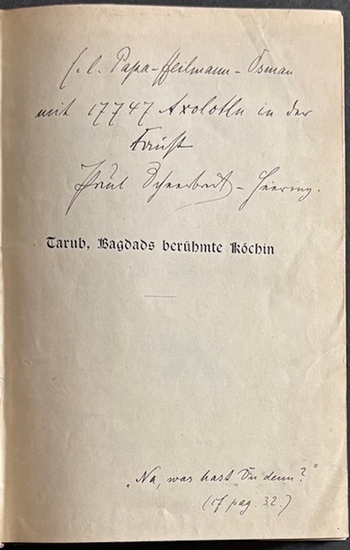 s. l. Papa-Heilmann-Osman
mit 17747 Axolotln in der
Faust
Paul Scheerbart-Hiering.
Tarub, Bagdads berühmte Köchin
„Na, was hast Du denn?"
(cf pag. 32.)